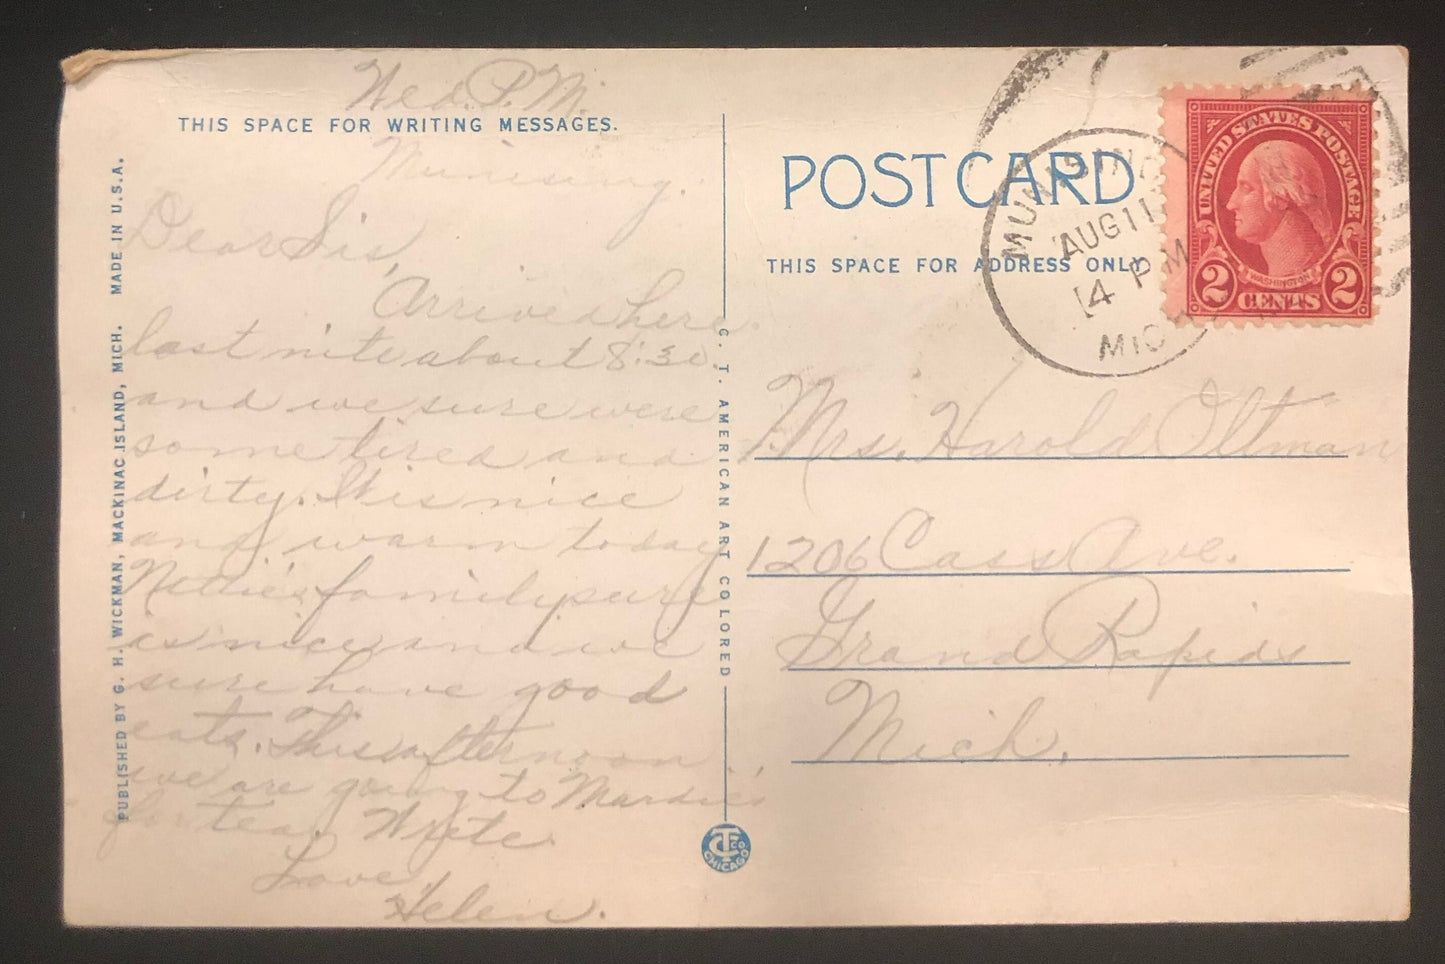 Wed. P.M.
THIS SPACE FOR WRITING MESSAGES.
Munising.
Dear Sis,
Arrived here
last nite about 8:30.
and we sure were
some tired and
dirty. It is nice
and warm today
Nettie's family sure
is nice and we
sure have good
eats. This afternoon
we are going to Mardie's
for tea. Write.
Love,
Helen.
PUBLISHED BY G. H. WICKMAN, MACKINAC ISLAND, MICH. MADE IN U.S.A.
C. T. AMERICAN ART COLORED
CT CO
CHICAGO
POST CARD
THIS SPACE FOR ADDRESS ONLY
MUNISING
AUG 11
4 PM
MICH
UNITED STATES POSTAGE
WASHINGTON
2 CENTS 2
Mrs. Harold Oltman
1206 Cass Ave.
Grand Rapids
Mich.